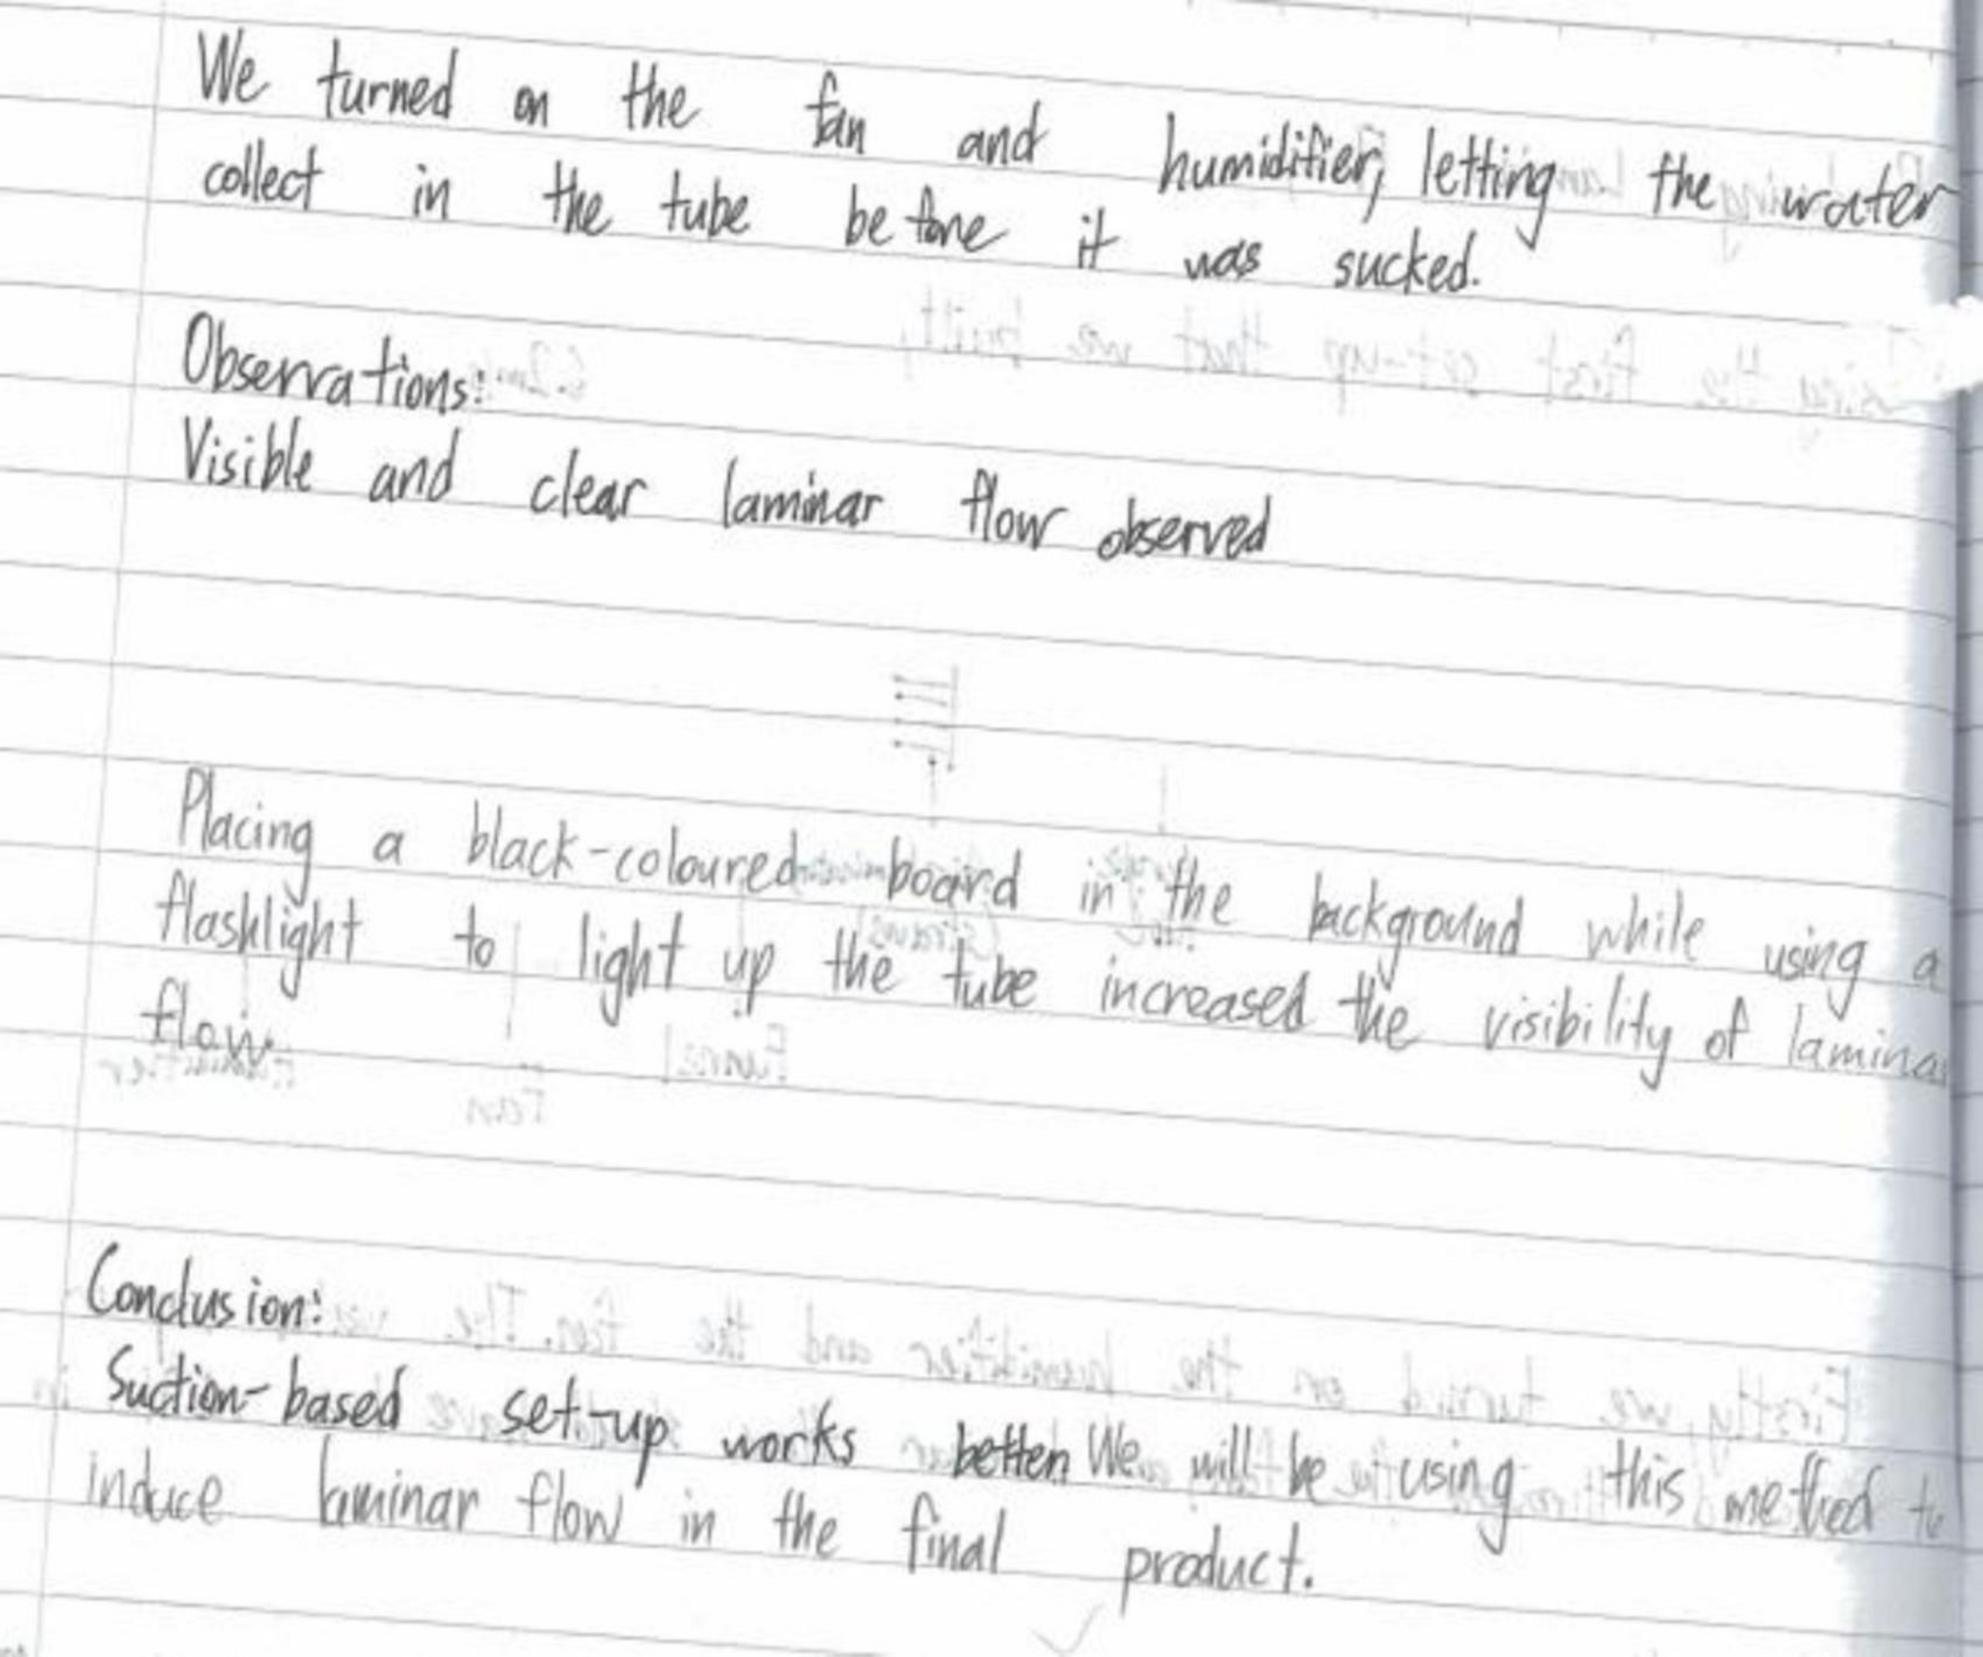 We turned on the fan and humidifier, letting the water
collect in the tube before it was sucked.
Observations:
Visible and clear laminar flow observed
Placing a black-coloured board in the background while using a
flashlight to light up the tube increased the visibility of laminar
flow.
Conclusion:
Suction-based set-up works better. We will be using this method to
induce laminar flow in the final product.